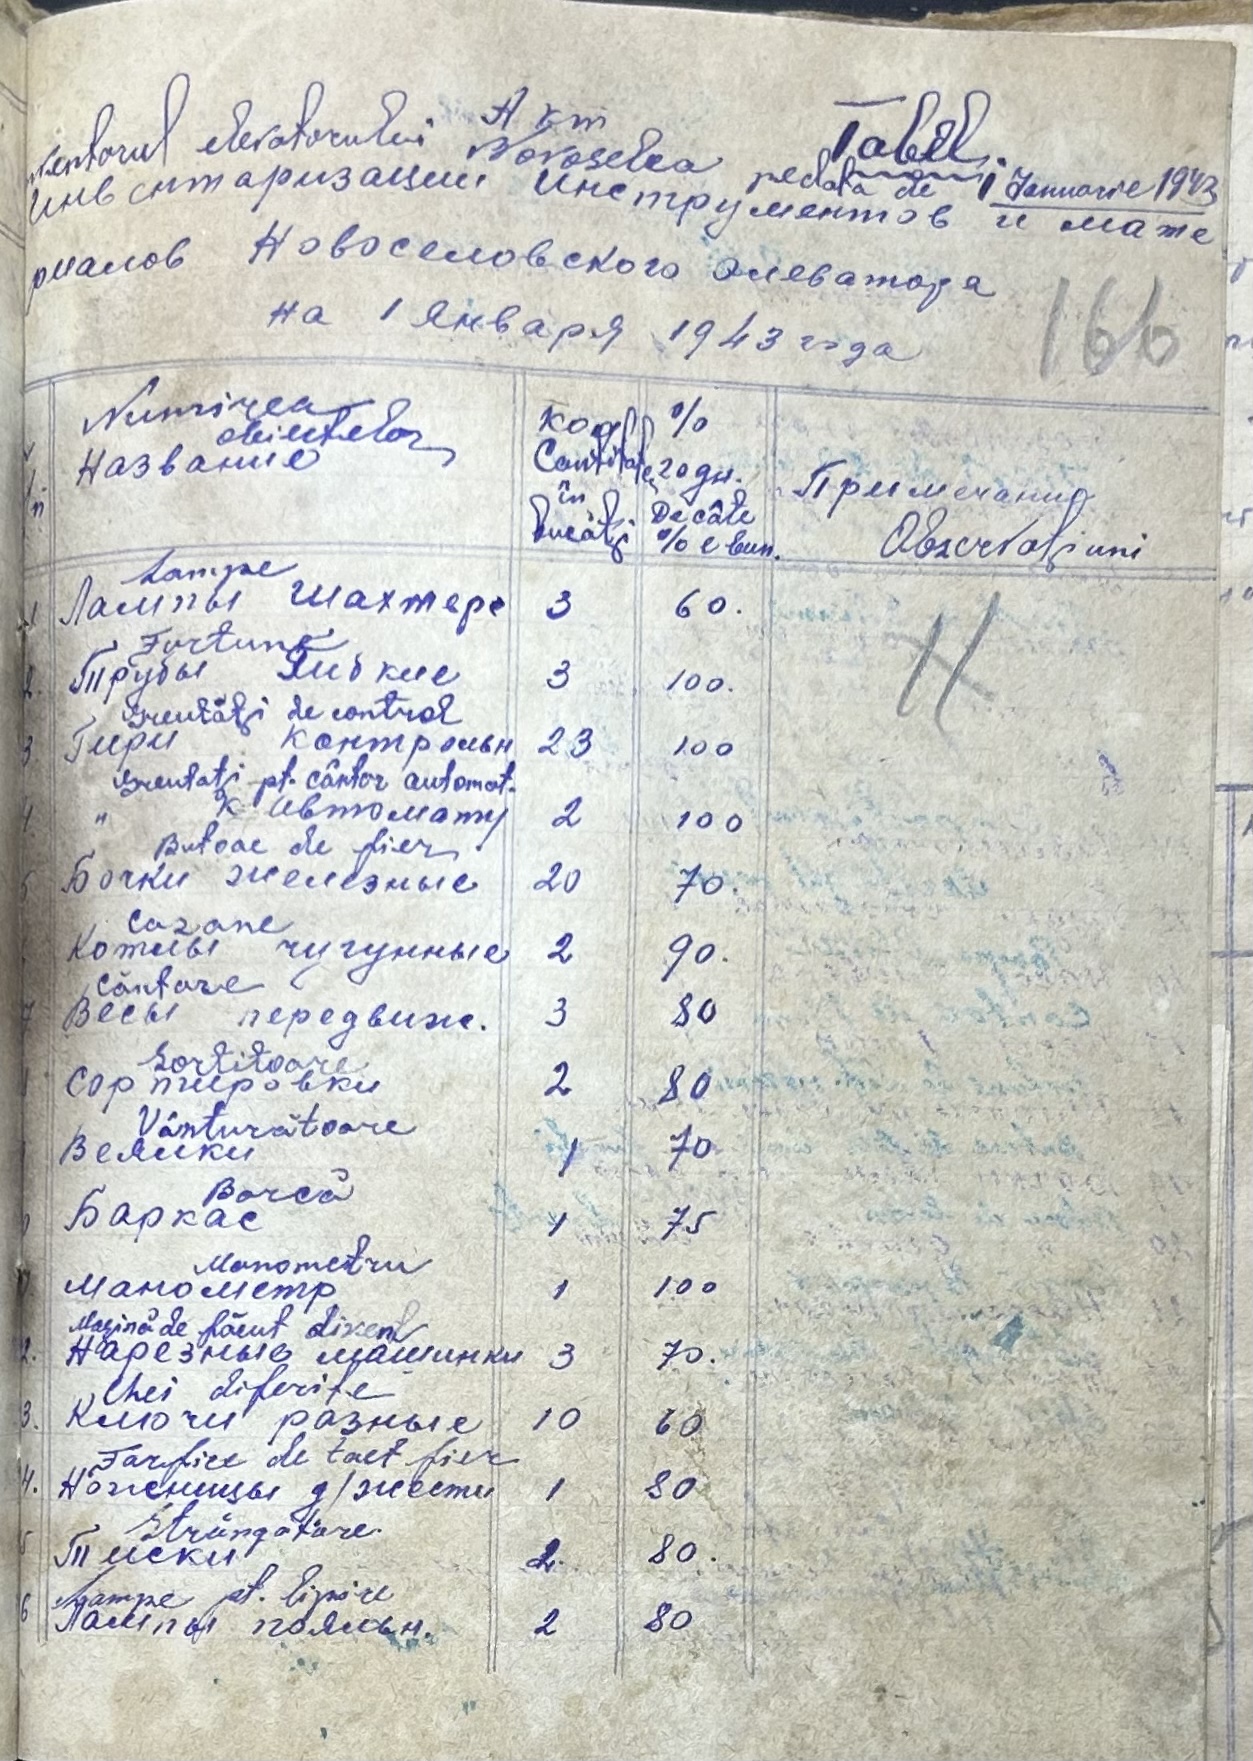 Акт Tabel.
Inventorul elevatorului Novoselca pe data de 1 Januarie 1943
Инвентаризации инструментов и мате
риалов Новоселовского элеватора
на 1 Января 1943 года
166
Numirea
obiectelor
Название
Кол
Cantitate
în
bucăți
%
годн.
De câte
% e bun.
Примечание
Observațiuni
Lampe
1 Лампы Шахтерс 3 60.
Furtune
2. Трубы Гибкие 3 100.
Greutăți de control
3 Гири контрольн 23 100
Greutăți pt. cântar automat.
4. " к автомату 2 100
Butoae de fier
5 Бочки железные 20 70.
Cazane
Котлы чугунные 2 90.
Cântare
7 Весы передвиж. 3 80
Sortitoare
Сортировки 2 80
Vânturătoare
Веялки 1 70
Barcă
Баркас 1 75
Manometru
Манометр 1 100
Mașină de făcut
2. Нарезные машинки 3 70.
Chei diferite
3. Ключи разные 10 60
Farfice de tăet fier
4. Ножницы д/жести 1 80
Strângătoare
5 Тиски 2. 80.
Lampe pt. lipire
6 Лампы паяльн. 2 80